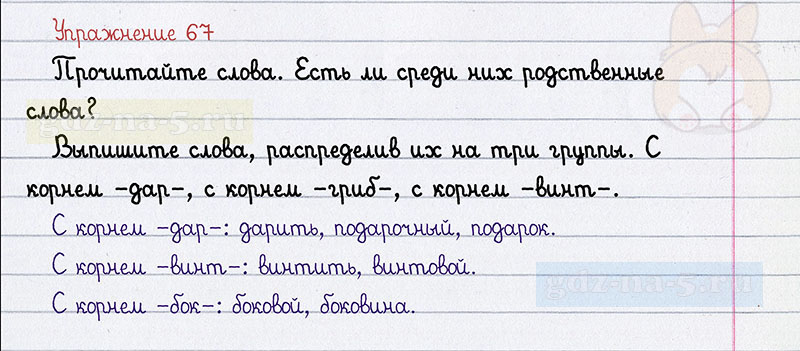 Упражнение 67
Прочитайте слова. Есть ли среди них родственные
слова?
gdz-na-5.ru
Выпишите слова, распределив их на три группы. С
корнем -дар-, с корнем -гриб-, с корнем -винт-.
С корнем -дар-: дарить, подарочный, подарок.
С корнем -винт-: винтить, винтовой.
gdz-na-5.ru
С корнем -бок-: боковой, боковина.